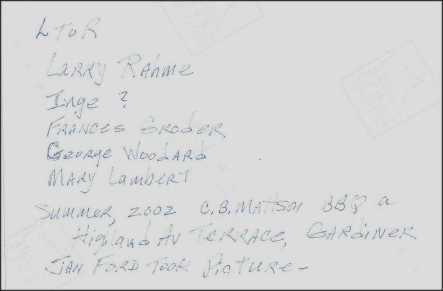 L to R
Larry Rahme
Inge ?
Frances Groder
George Woodard
Mary Lambert
Summer, 2002 C.B. Mattson BBQ a
Highland Av Terrace, Gardiner
Jan Ford Took Picture -